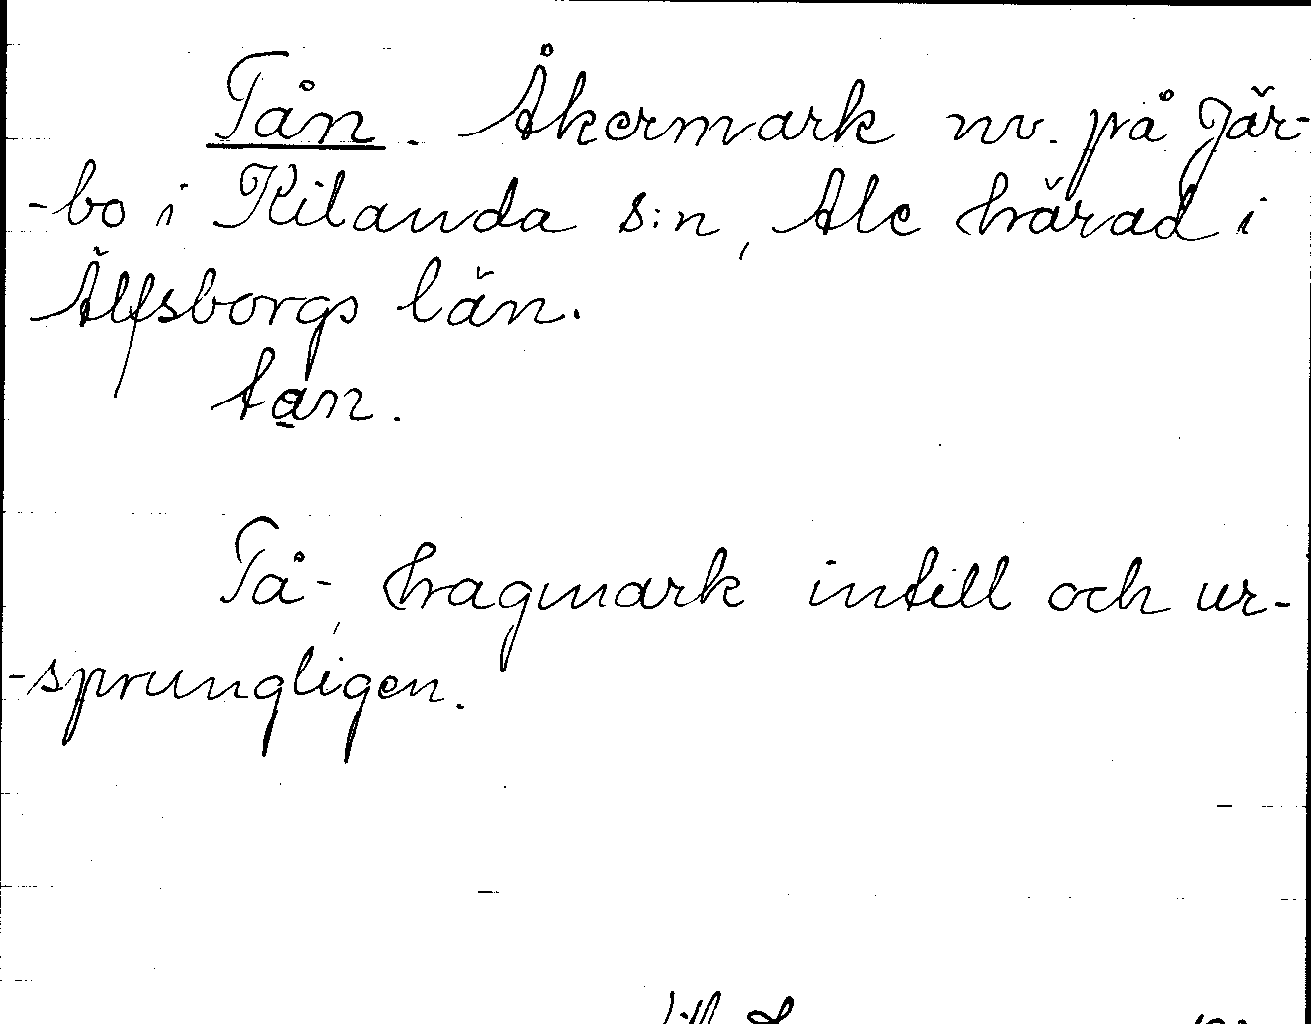 Tån. Åkermark nv. på Jär-
-bo i Kilanda s:n, Ale härad i
Älfsborgs län.
tan.
Tå-, hagmark intill och ur-
-sprungligen.